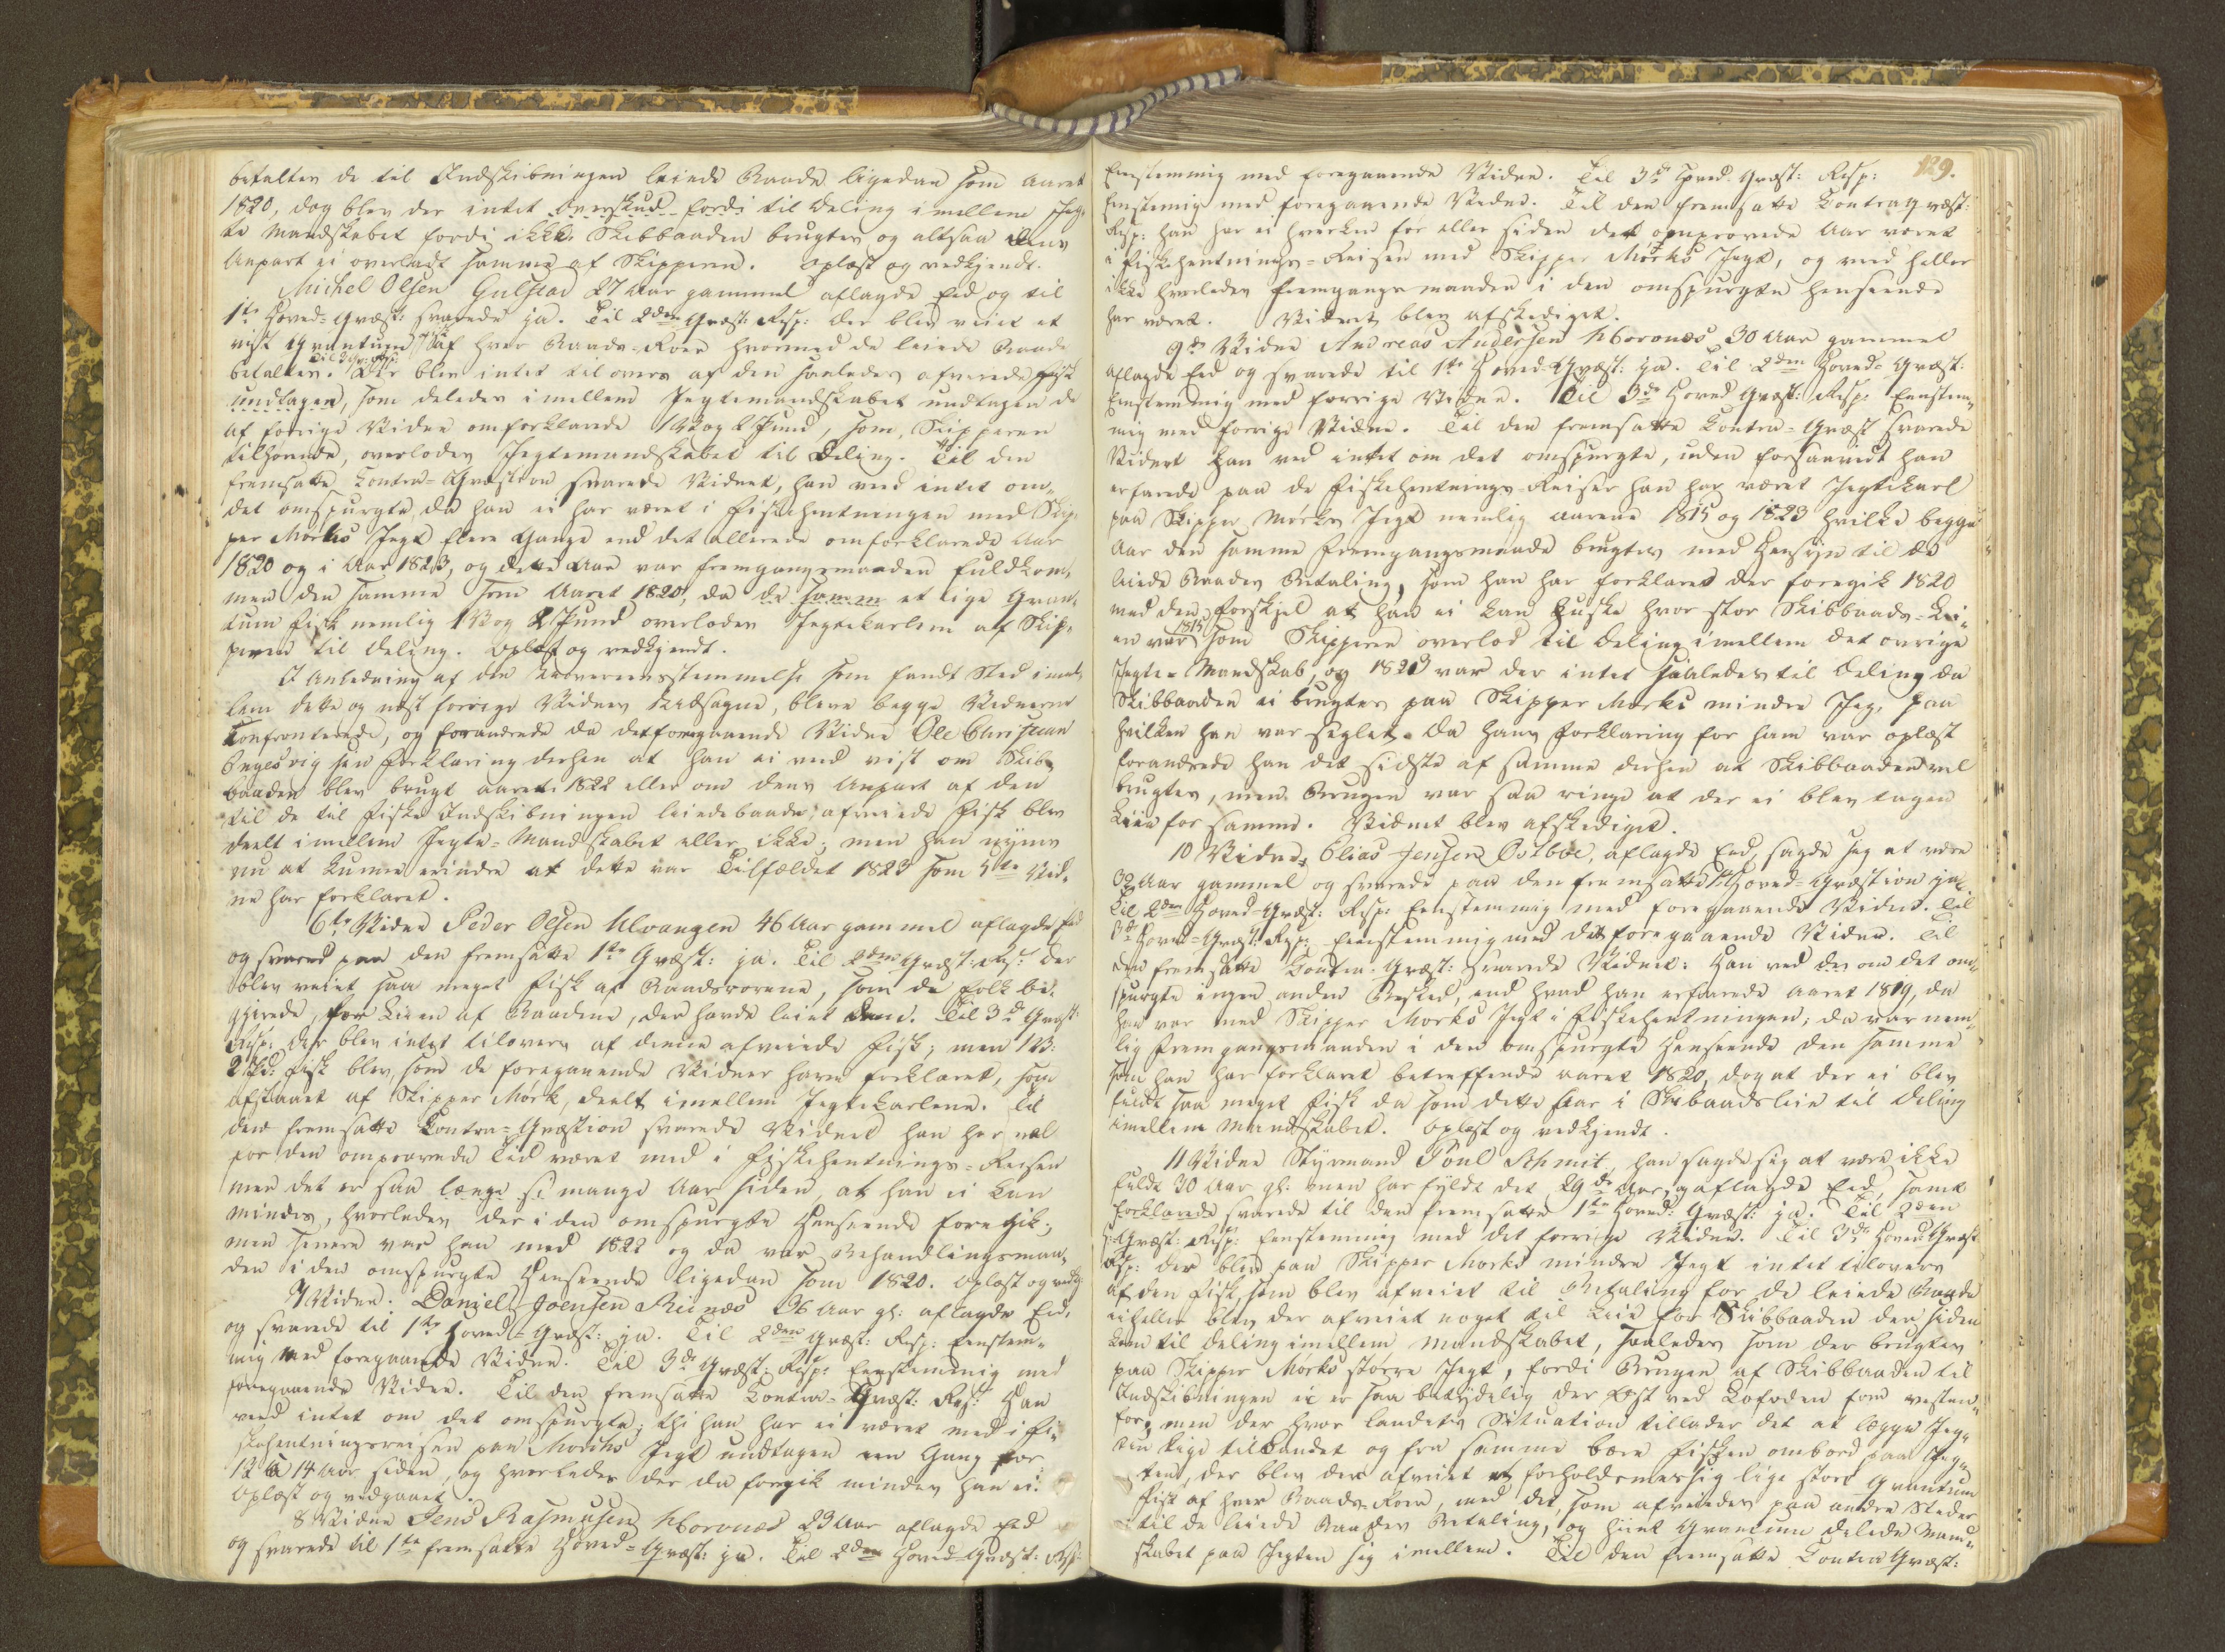 betaltes de til Indskibningen leiede Baade ligedan som Aaret
1820, dog blev der intet Overskud fordi til Deling imellem Jeg-
te Mandskabet fordi ikke Skibbaaden brugtes og altsaa dens
Anpart ei overladt samme af Skipperen. Oplæst og vedkjendt.
Michel Olsen Gulstad 27 Aar gammel aflagde Eed og til
1te Hoved-Qvæst: svarede ja. Til 2den Qvæst: Resp: der blev veiet et
vist Qvantum Fisk af hver Baads-Roer hvormed de leiede Baade
betaltes. Til 3 Qv: Resp: Der blev intet tilovers af den saaledes afveiede Fisk
undtagen, som deledes imellem Jegtemandskabet undtagen de
af forrige Vidne omforklarede 1 V og 2 Pund, som, Skipperen
tilhørende, overlodes Jegtemandskabet til Deling. Til den
fremsatte Contra-Qvæstion svarede Vidnet, han veed intet om
det omspurgte, da han ei har været i Fiskehentningen med Skip-
per Mørks Jegt flere Gange end det allerede omforklarede Aar
1820 og i Aar 1823, og dette Aar var Fremgangsmaaden fuldkom-
men den samme som Aaret 1820, da de samme et lige Qvan-
tum Fisk nemlig 1 V og 2 Pund overlodes Jegtekarlene af Skip-
peren til Deling. Oplæst og vedkjendt.
I Anledning af den Uovereensstemmelse som fandt Sted imel-
lem dette og næst forrige Vidnes Udsagne, bleve begge Vidnerne
Confronterede, og forandrede da det foregaaende Vidne Ole Christian
Engesvig sin Forklaring derhen at han ei veed vist om Skib-
baaden blev brugt Aaret 1822 eller om dens Anpart af den
til de til Fiske Indskibningen leiede Baade, afveiede Fisk blev
deelt imellem Jegte-Mandskabet eller ikke; men han synes
nu at kunne erindre at dette var Tilfældet 1823 som 5te Vid-
ne har forklaret.
6te Vidne Peder Olsen Alvangen 46 Aar gammel aflagde Eed
og svared paa den fremsatte 1te Qvæst: ja. Til 2den Qvæst: Resp: der
blev veiet saa meget Fisk af Baadsroerne, som de Folk be-
gjerede, for Leien af Baadene, der havde leiet dem. Til 3de Qvæst:
Resp: der blev intet tilovers af denne afveiede Fisk; men 1 V:
2 Pd: Fisk blev, som de foregaaende Vidner have forklaret, som
afstaaet af Skipper Mørk, deelt imellem Jegtekarlene. Til
den fremsatte Contra-Qvæstion svarede Vidnet han har vel
før den omprøvede Tid været med i Fiskehentnings-Reisen
men det er saa længe si mange Aar siden, at han ei kan
mindes, hvorledes der i den omspurgte Henseende foregik;
men senere var han med 1822 og da var Behandlingsmaa-
den i den omspurgte Henseende ligedan som 1820. Oplæst og vedkj:
7 Vidne: Daniel Joensen Reinæs 36 Aar gl: aflagde Eed,
og svarede til 1te Hoved-Qvæst: ja. Til 2den Qvæst: Resp: Eenstem-
mig med foregaaende Vidne. Til 3de Qvæst: Resp: Eenstemmig med
foregaaende Vidne. Til den fremsatte Contra-Qvæst: Resp: Han
veed intet om det omspurgte; thi han har ei været med i Fi-
skehentningsreisen paa Mørchs Jegt undtagen een Gang for
12 à 14 Aar siden, og hvorledes der da foregik mindes han ei.
Oplæst og vedgaaet.
8 Vidne Jens Rasmusen Aboronæs 23 Aar aflagde Eed
og svarede til 1te fremsatte Hoved-Qvæst: ja. Til 2den Hoved-Qvæst: Resp:
129.
Eenstemmig med foregaaende Vidne. Til 3de Hoved-Qvæst: Resp:
Eenstemmig med foregaaende Vidne. Til den fremsatte Contraqvæst:
Resp: han har ei hverken før eller siden det omprøvede Aar været
i Fiskehentnings-Reisen med Skipper Mørks Jegt, og veed heller
ikke hvorledes Fremgangsmaaden i den omspurgte Henseende
har været. Vidnet blev afskediget.
9de Vidne Andreas Andersen Aboronæs 30 Aar gammel
aflagde Eed og svarede til 1te Hoved-Qvæst: ja. Til 2den Hoved-Qvæst:
Eenstemmig med forrige Vidne. Til 3de Hoved Qvæst: Resp: Eenstem-
mig med forrige Vidne. Til den fremsatte Contra-Qvæst svarede
Vidnet han ved intet om det omspurgte, uden forsaavidt han
erfarede paa de Fiskehentnings-Reiser han har været Jegtekarl
paa Skipper Mørks Jegt nemlig Aarene 1815 og 1823 hvilke begge
Aar den samme Fremgangsmaade brugtes med Hensyn til de
leiede Baades Betaling, som han har forklaret der foregik 1820
med den Forskjel at han ei kan huske hvor stor Skibbaads-Lei-
en var 1815 som Skipperen overlod til Deling imellem det øvrige
Jegte-Mandskab, og 1823 var der intet saaledes til Deling da
Skibbaaden ei brugtes paa Skipper Mørks mindre Jeg, paa
hvilken han var seglet. Da hans Forklaring for ham var oplæst
forandrede han det sidste af samme derhen at Skibbaaden vel
brugtes, men Brugen var saa ringe at der ei blev tagen
Leie for samme. Vidnet blev afskediget.
10 Vidne, Elias Jensen Østboe, aflagde Eed, sagde sig at være
30 Aar gammel og svarede paa den fremsatte 1 Hoved-Qvæstion ja.
Til 2den Hoved-Qvæst: Resp: Eenstemmig med foregaaende Vidne. Til
3de Hoved-Qvæst: Resp: Eenstemmig med det foregaaende Vidne. Til
den fremsatte Contra-Qvæst: svarede Vidnet: Han ved der om det om-
spurgte ingen anden Besked, end hvad han erfarede Aaret 1819, da
han var med Skipper Mørks Jegt i Fiskehentningen; da var nem-
lig Fremgangsmaaden i den omspurgte Henseende den samme
som han har forklaret betreffende Aaret 1820, dog at der ei blev
fuldt saa meget Fisk da som dette Aar i Skibbaadsleie til Deling
imellem Mandskabet. Oplæst og vedkjendt.
11 Vidne Styrmand Poul Schmit, han sagde sig at være ikke
fuldt 30 Aar gl: men har fyldt det 29de Aar, aflagde Eed, samt
forklarede svarede til den fremsatte 1te Hoved-Qvæst: ja. Til 2den
Qvæst: Resp: Eenstemmig med det forrige Vidne. Til 3de Hoved Qvæst
Resp: der blev paa Skipper Mørks mindre Jegt intet tilovers
af den Fisk, som blev afveiet til Betaling for de leiede Baade
ei heller blev der afveiet noget til Leie for Skibbaaden der siden
kom til Deling imellem Mandskabet, saaledes som der brugtes
paa Skipper Mørks større Jegt, fordi Brugen af Skibbaaden til
Indskibningen ei er saa betydelig der Øst ved Lofoden som vesten-
for, men der hvor Landets Situation tillader det at lægge Jeg-
ten lige til Landet og fra samme bære Fisken ombord paa Jeg-
ten, der blev der afveiet et forholdsmæssig lige stort Qvantum
Fisk af hver Baads-Roer, med det, som afveiedes paa andre Steder
til de leiede Baades Betaling, og hiint Qvantum deelede Mand-
skabet paa Jegten sig imellem. Til den fremsatte Contra Qvæst: